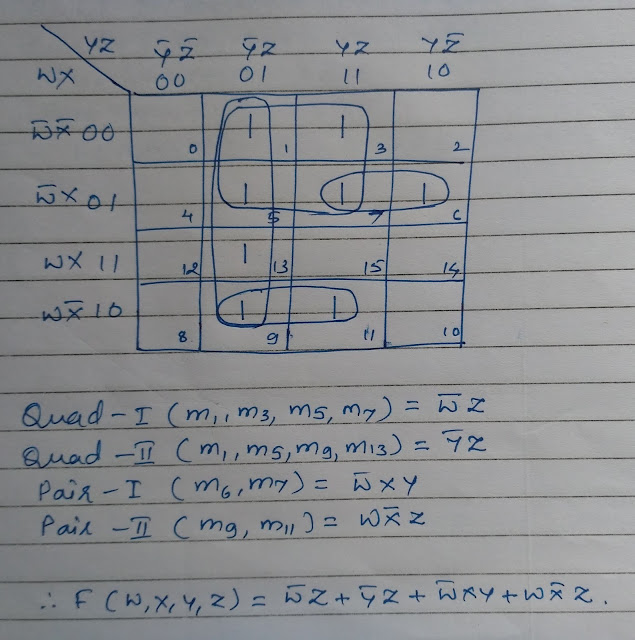 YZ Y̅Z̅ Y̅Z YZ YZ̅
WX 00 01 11 10
W̅X̅ 00 1 1
0 1 3 2
W̅X 01 1 1 1
4 5 7 6
WX 11 1
12 13 15 14
WX̅ 10 1 1
8 9 11 10
Quad-I (m1, m3, m5, m7) = W̅Z
Quad-II (m1, m5, m9, m13) = Y̅Z
Pair-I (m6, m7) = W̅XY
Pair-II (m9, m11) = WX̅Z
∴ F (W, X, Y, Z) = W̅Z + Y̅Z + W̅XY + WX̅Z.